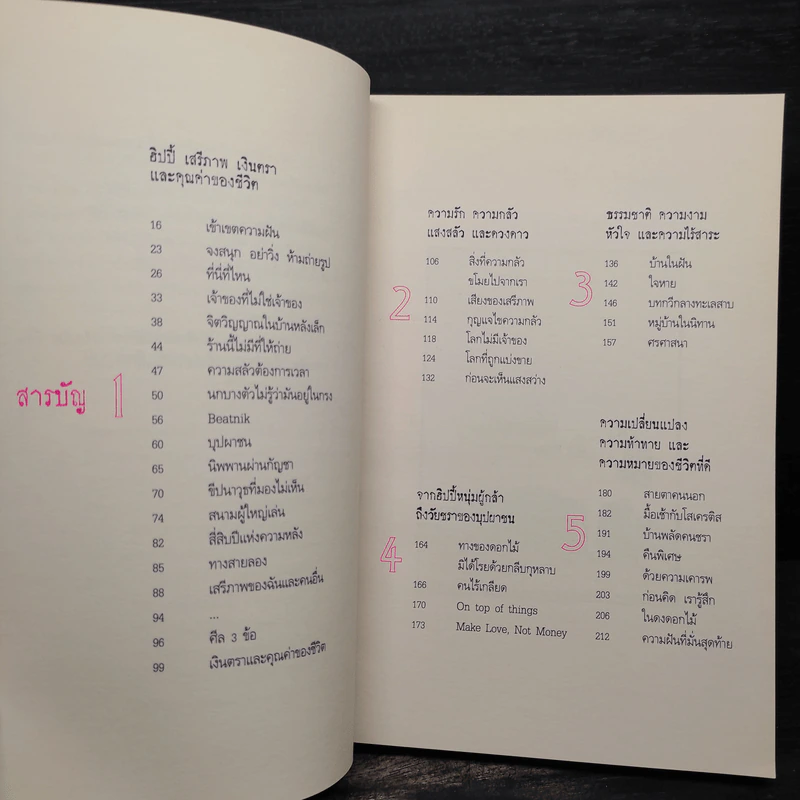 สารบัญ
1
ฮิปปี้ เสรีภาพ เงินตรา
และคุณค่าของชีวิต
16 เข้าเขตความฝัน
23 จงสนุก อย่าวิ่ง ห้ามถ่ายรูป
26 ที่นี่ที่ไหน
33 เจ้าของที่ไม่ใช่เจ้าของ
38 จิตวิญญาณในบ้านหลังเล็ก
44 ร้านนี้ไม่มีที่ให้ถ่าย
47 ความสลัวต้องการเวลา
50 นกบางตัวไม่รู้ว่ามันอยู่ในกรง
56 Beatnik
60 บุปผาชน
65 นิพพานผ่านกัญชา
70 ขีปนาวุธที่มองไม่เห็น
74 สนามผู้ใหญ่เล่น
82 สี่สิบปีแห่งความหลัง
85 ทางสายลอง
88 เสรีภาพของฉันและคนอื่น
94 ...
96 ศีล 3 ข้อ
99 เงินตราและคุณค่าของชีวิต
2
ความรัก ความกลัว
แสงสลัว และดวงดาว
106 สิ่งที่ความกลัว
ขโมยไปจากเรา
110 เสียงของเสรีภาพ
114 กุญแจไขความกลัว
118 โลกไม่มีเจ้าของ
124 โลกที่ถูกแบ่งขาย
132 ก่อนจะเห็นแสงสว่าง
3
ธรรมชาติ ความงาม
หัวใจ และความไร้สาระ
136 บ้านในฝัน
142 ใจหาย
146 บทกวีกลางทะเลสาบ
151 หมู่บ้านในนิทาน
157 ศรศาสนา
4
จากฮิปปี้หนุ่มผู้กล้า
ถึงวัยชราของบุปผาชน
164 ทางของดอกไม้
มิได้โรยด้วยกลีบกุหลาบ
166 คนไร้เกลียด
170 On top of things
173 Make Love, Not Money
5
ความเปลี่ยนแปลง
ความท้าทาย และ
ความหมายของชีวิตที่ดี
180 สายตาคนนอก
182 มื้อเช้ากับโสเครติส
191 บ้านพลัดคนชรา
194 คืนพิเศษ
199 ด้วยความเคารพ
203 ก่อนคิด เรารู้สึก
206 ในดงดอกไม้
212 ความฝันที่มั่นสุดท้าย